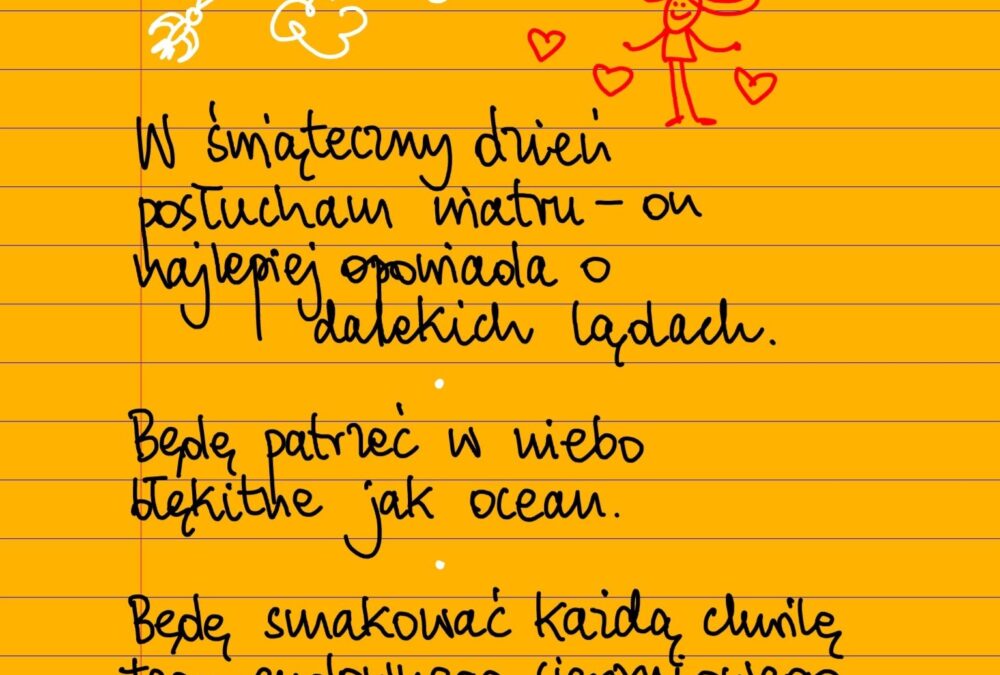 W świąteczny dzień
posłucham wiatru – on
najlepiej opowiada o
dalekich lądach.
Będę patrzeć w niebo
błękitne jak ocean.
Będę smakować każdą chwilę
tego cudownego sierpniowego